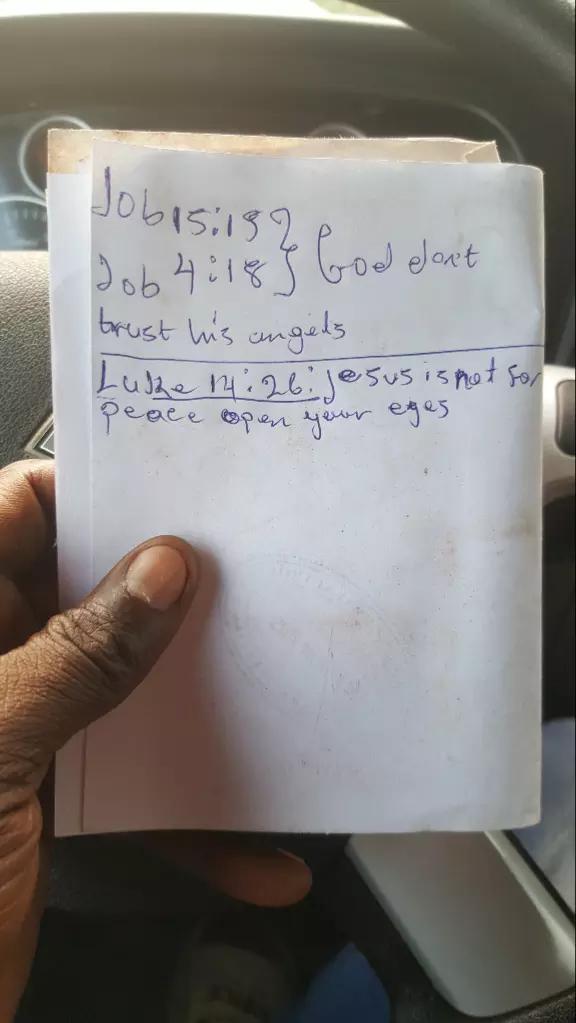 Job 15:15}
Job 4:18} God dont
trust his angels
Luke 14:26: jesus is not for
peace open your eyes